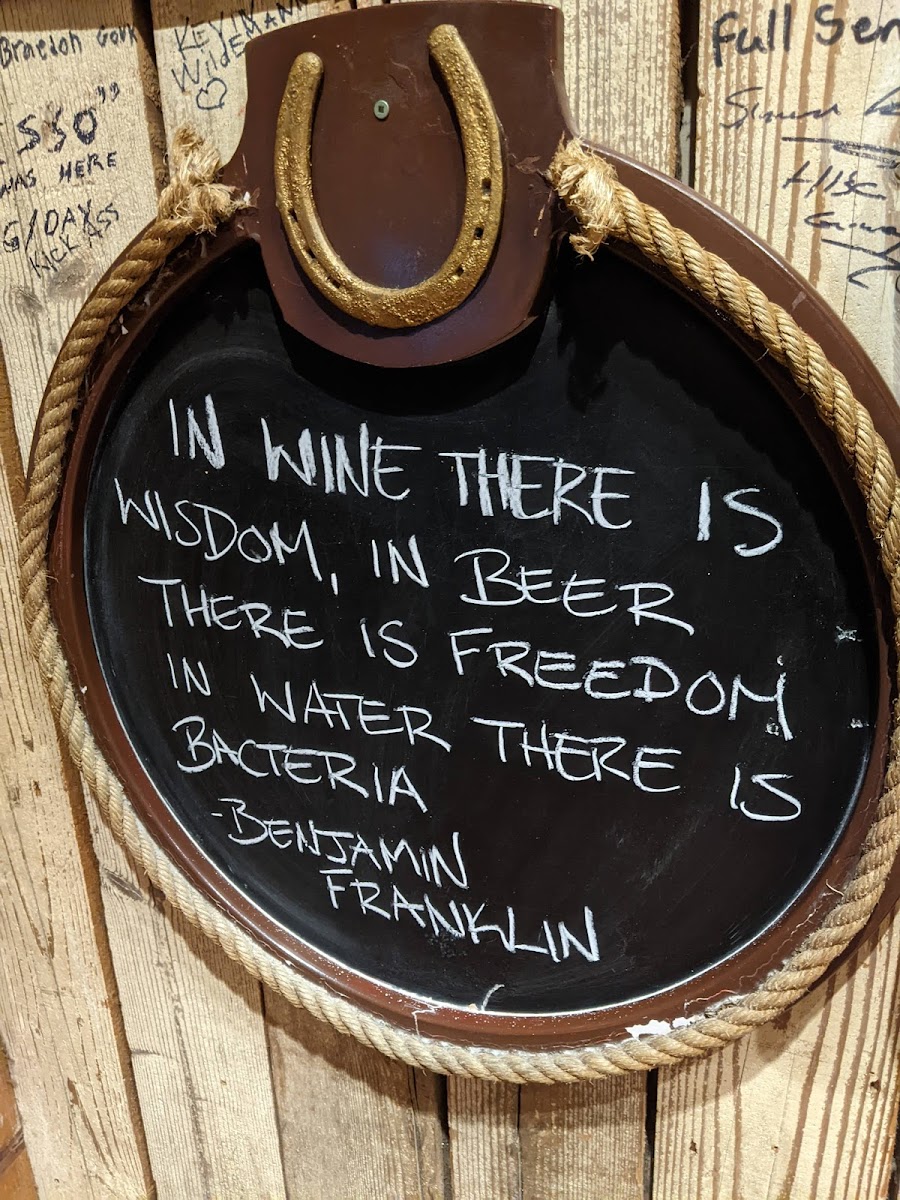 Braedon
KEVIN
WildEMANN
"
WAS HERE
G/DAY
KICK ASS
Full Sen
IN WINE THERE IS
WISDOM, IN BEER
THERE IS FREEDOM
IN WATER THERE IS
BACTERIA
-BENJAMIN
FRANKLIN